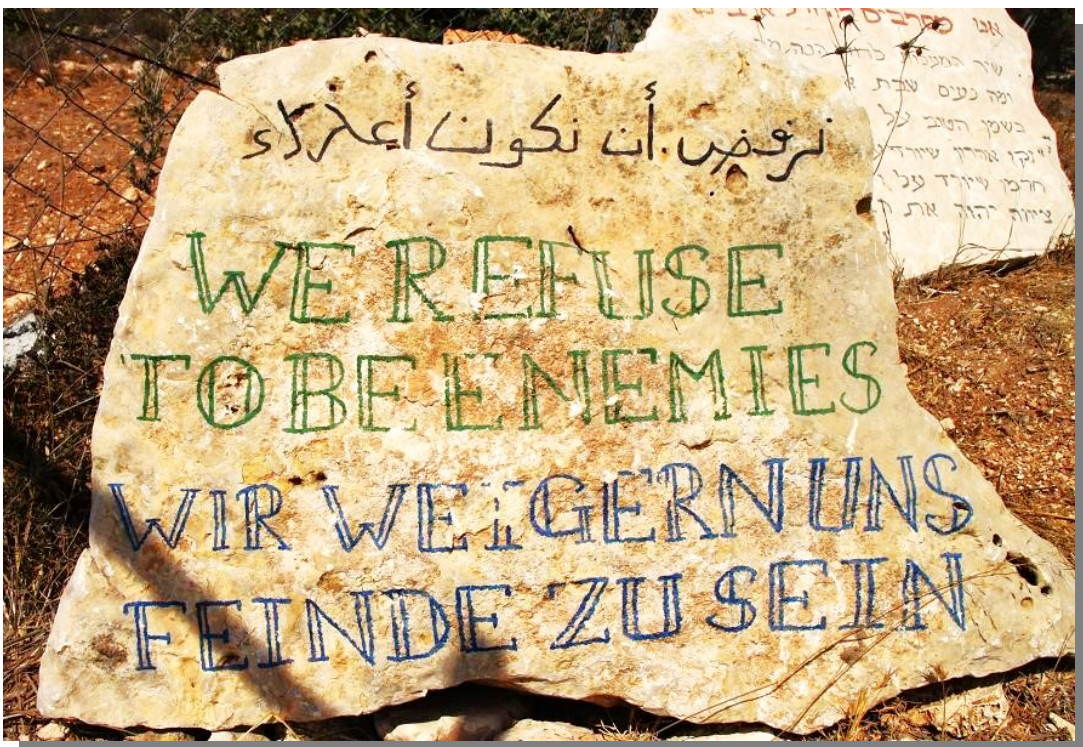 نرفض أن نكون أعداء
WE REFUSE
TO BE ENEMIES
WIR WEIGERN UNS
FEINDE ZU SEIN
אנו מסרבים להיות אויבים
שיר המעלות לדוד הנה מה
ומה נעים שבת
כשמן הטוב על
זקן אהרן שיורד ע
חרמן שיורד על
ציוה יהוה את